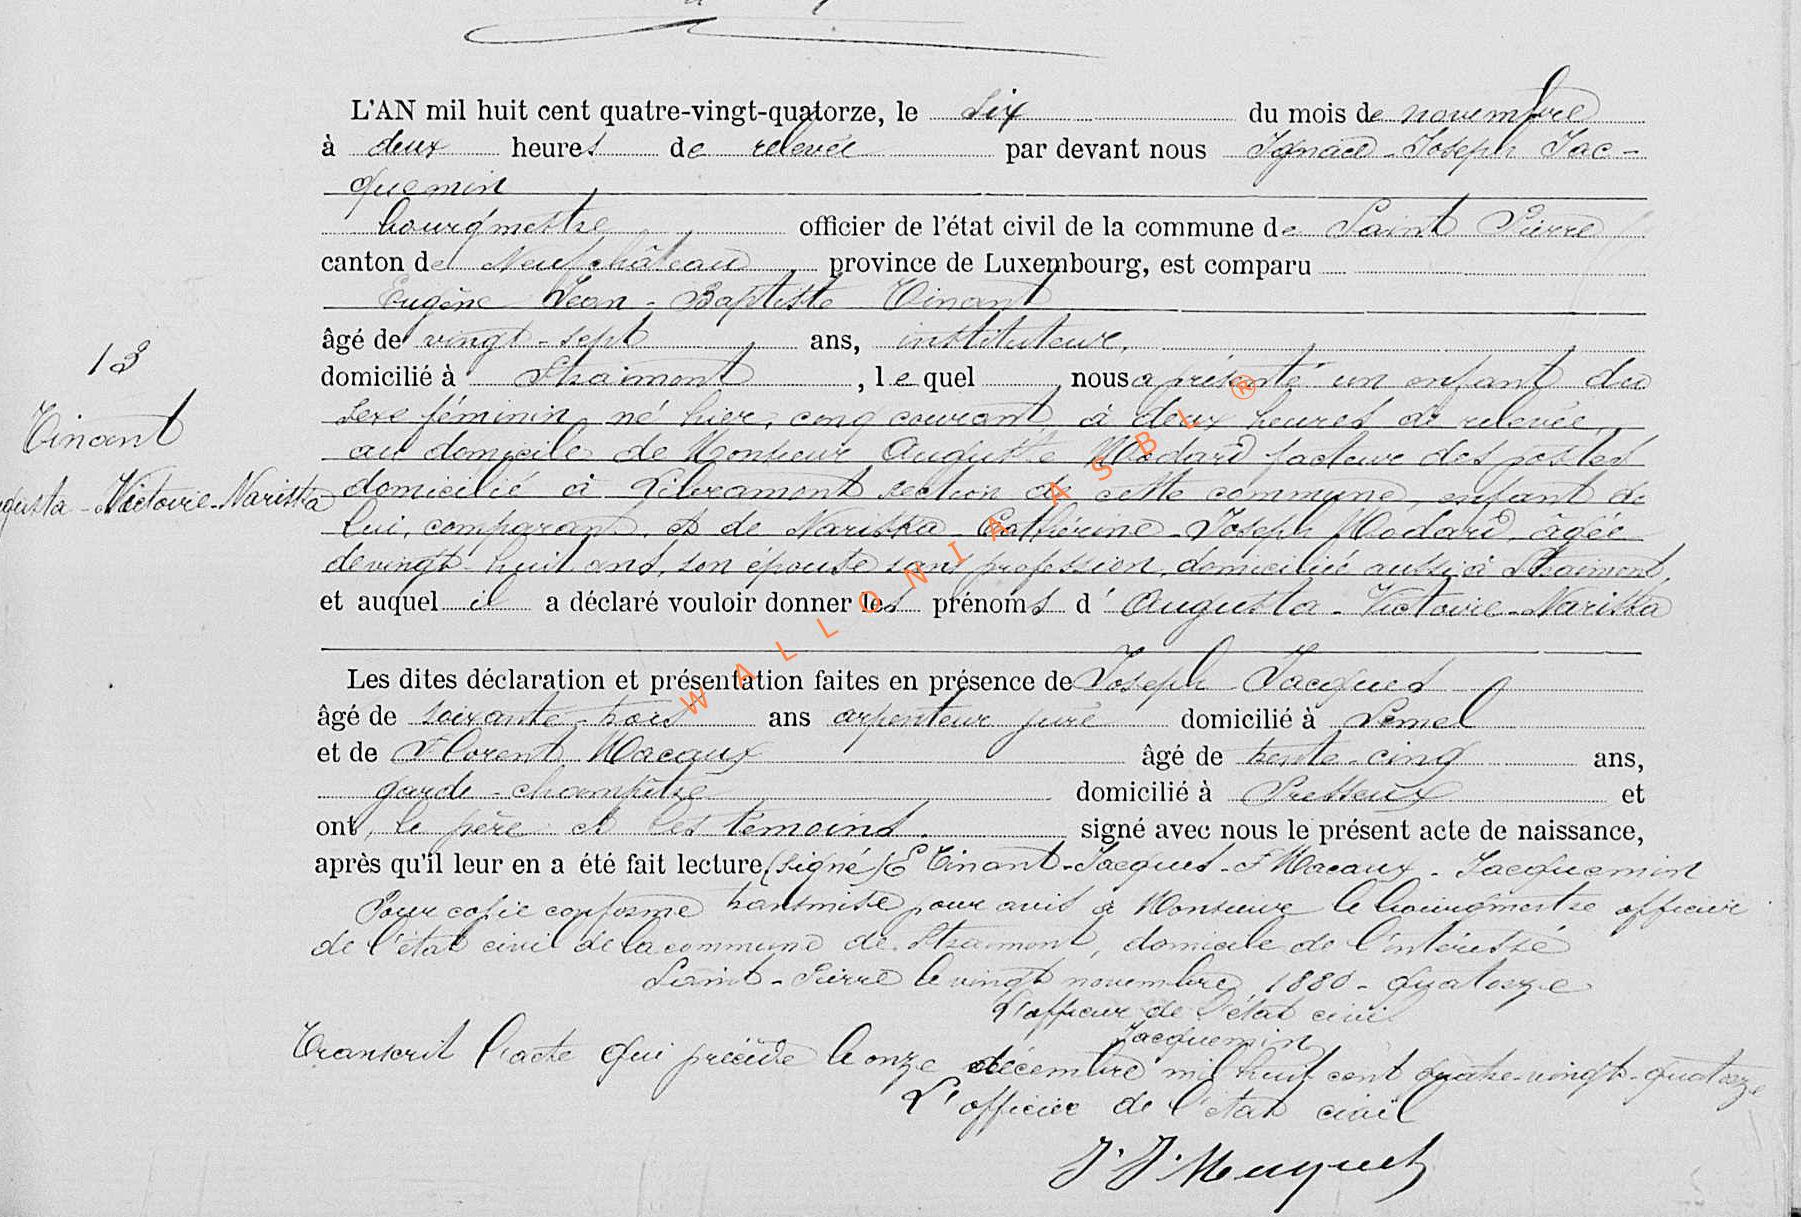 L'AN mil huit cent quatre-vingt-quatorze, le six du mois de novembre
à deux heures de relevée par devant nous Ignace-Joseph Jac-
quemin
bourgmestre officier de l'état civil de la commune de Saint Pierre
canton de Neufchâteau province de Luxembourg, est comparu
Eugène Jean-Baptiste Tinant
âgé de vingt-sept ans, instituteur,
domicilié à Straimont, lequel nous a présenté un enfant du
13
sexe féminin, né hier, cinq courant, à deux heures de relevée,
Tinant
au domicile de Monsieur Auguste Modard facteur des postes
domicilié à Libramont section de cette commune, enfant de
gusta-Victoire-Nariska
lui, comparant, et de Nariska Cathérine-Joseph Modard, âgée
de vingt-huit ans, son épouse sans profession, domiciliée aussi à Straimont,
et auquel il a déclaré vouloir donner les prénoms d'Augusta-Victoire-Nariska
Les dites déclaration et présentation faites en présence de Joseph Jacques
âgé de soixante-trois ans arpenteur juré domicilié à Semel
et de Florent Macaux âgé de trente-cinq ans,
garde-champêtre domicilié à Presseux et
ont, le père et les témoins, signé avec nous le présent acte de naissance,
après qu'il leur en a été fait lecture (signé) E Tinant-Jacques-F Macaux-Jacquemin
Pour copie conforme transmise pour avis à Monsieur le bourgmestre officier
de l'état civil de la commune de Straimont, domicile de l'intéressé
Saint-Pierre le vingt novembre 1880-quatorze
L'officier de l'état civil
Jacquemin
Transcrit l'acte qui précède le onze décembre mil huit cent quatre-vingt-quatorze
L'officier de l'état civil
WALLONIA ASBL ®